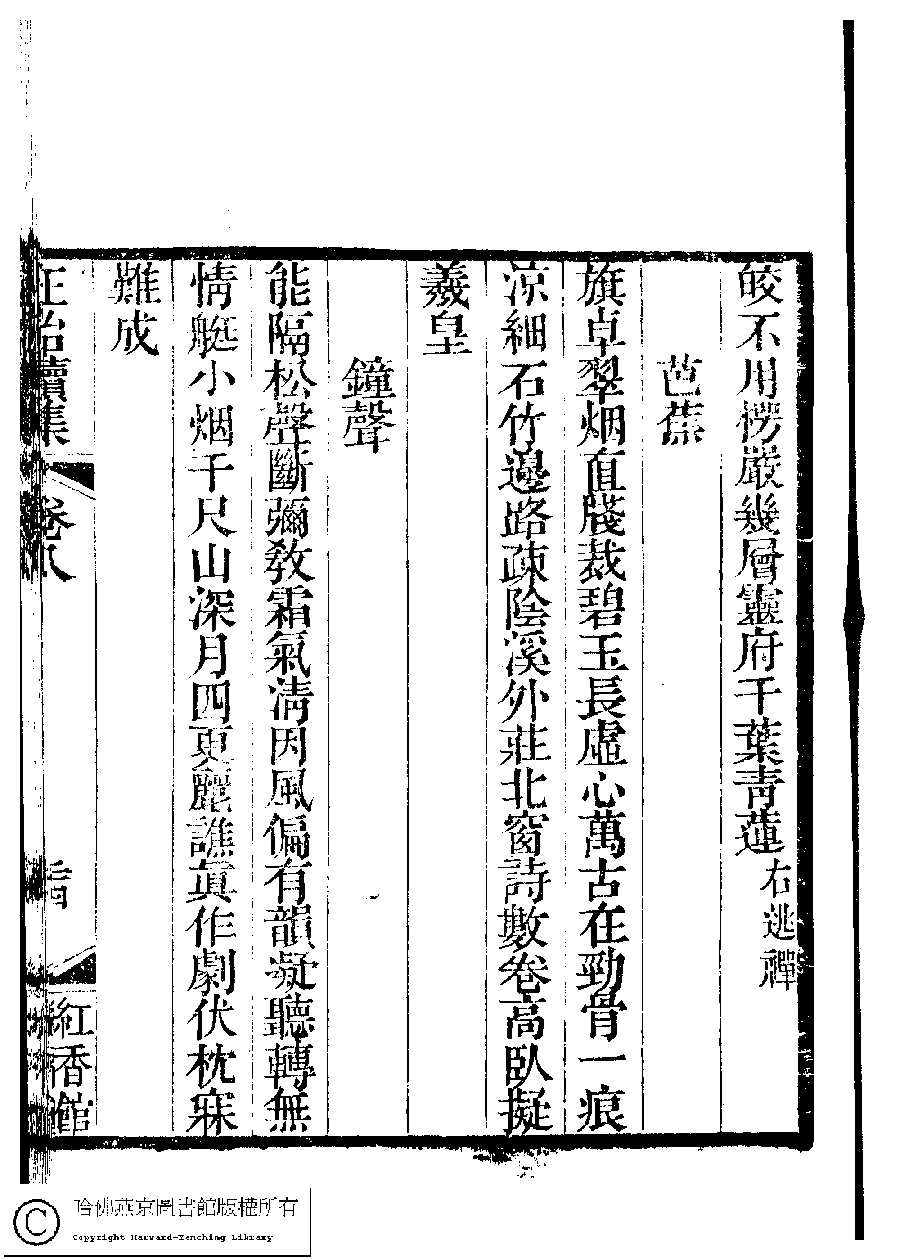 皎不用楞嚴幾層靈府千葉青蓮右逃禪
芭蕉
旗卓翠烟直牋裁碧玉長虛心萬古在勁骨一痕
凉細石竹邊路疎陰溪外莊北窗詩數卷高臥擬
羲皇
鐘聲
能隔松聲斷彌教霜氣清因風偏有韻凝聽轉無
情艇小烟千尺山深月四更麗譙眞作劇伏枕寐
難成
續集 卷八
紅香館
哈佛燕京圖書館版權所有
Copyright Harvard-Yenching Library